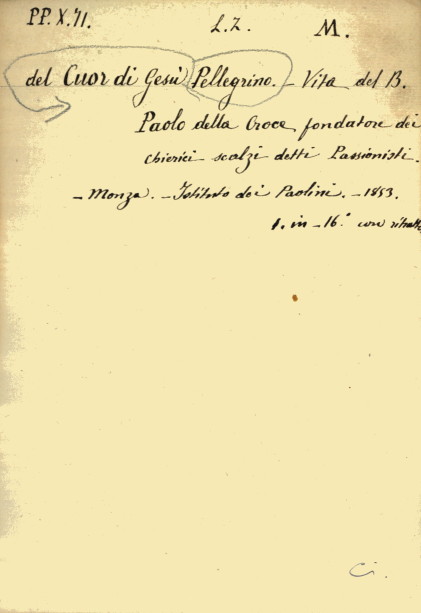 PP. X. 71. L. Z. M.
del Cuor di Gesù Pellegrino. - Vita del B.
Paolo della Croce, fondatore dei
chierici scalzi detti Passionisti.
- Monza. - Istituto dei Paolini. - 1853.
1. in - 16.° con ritratto
Ci.